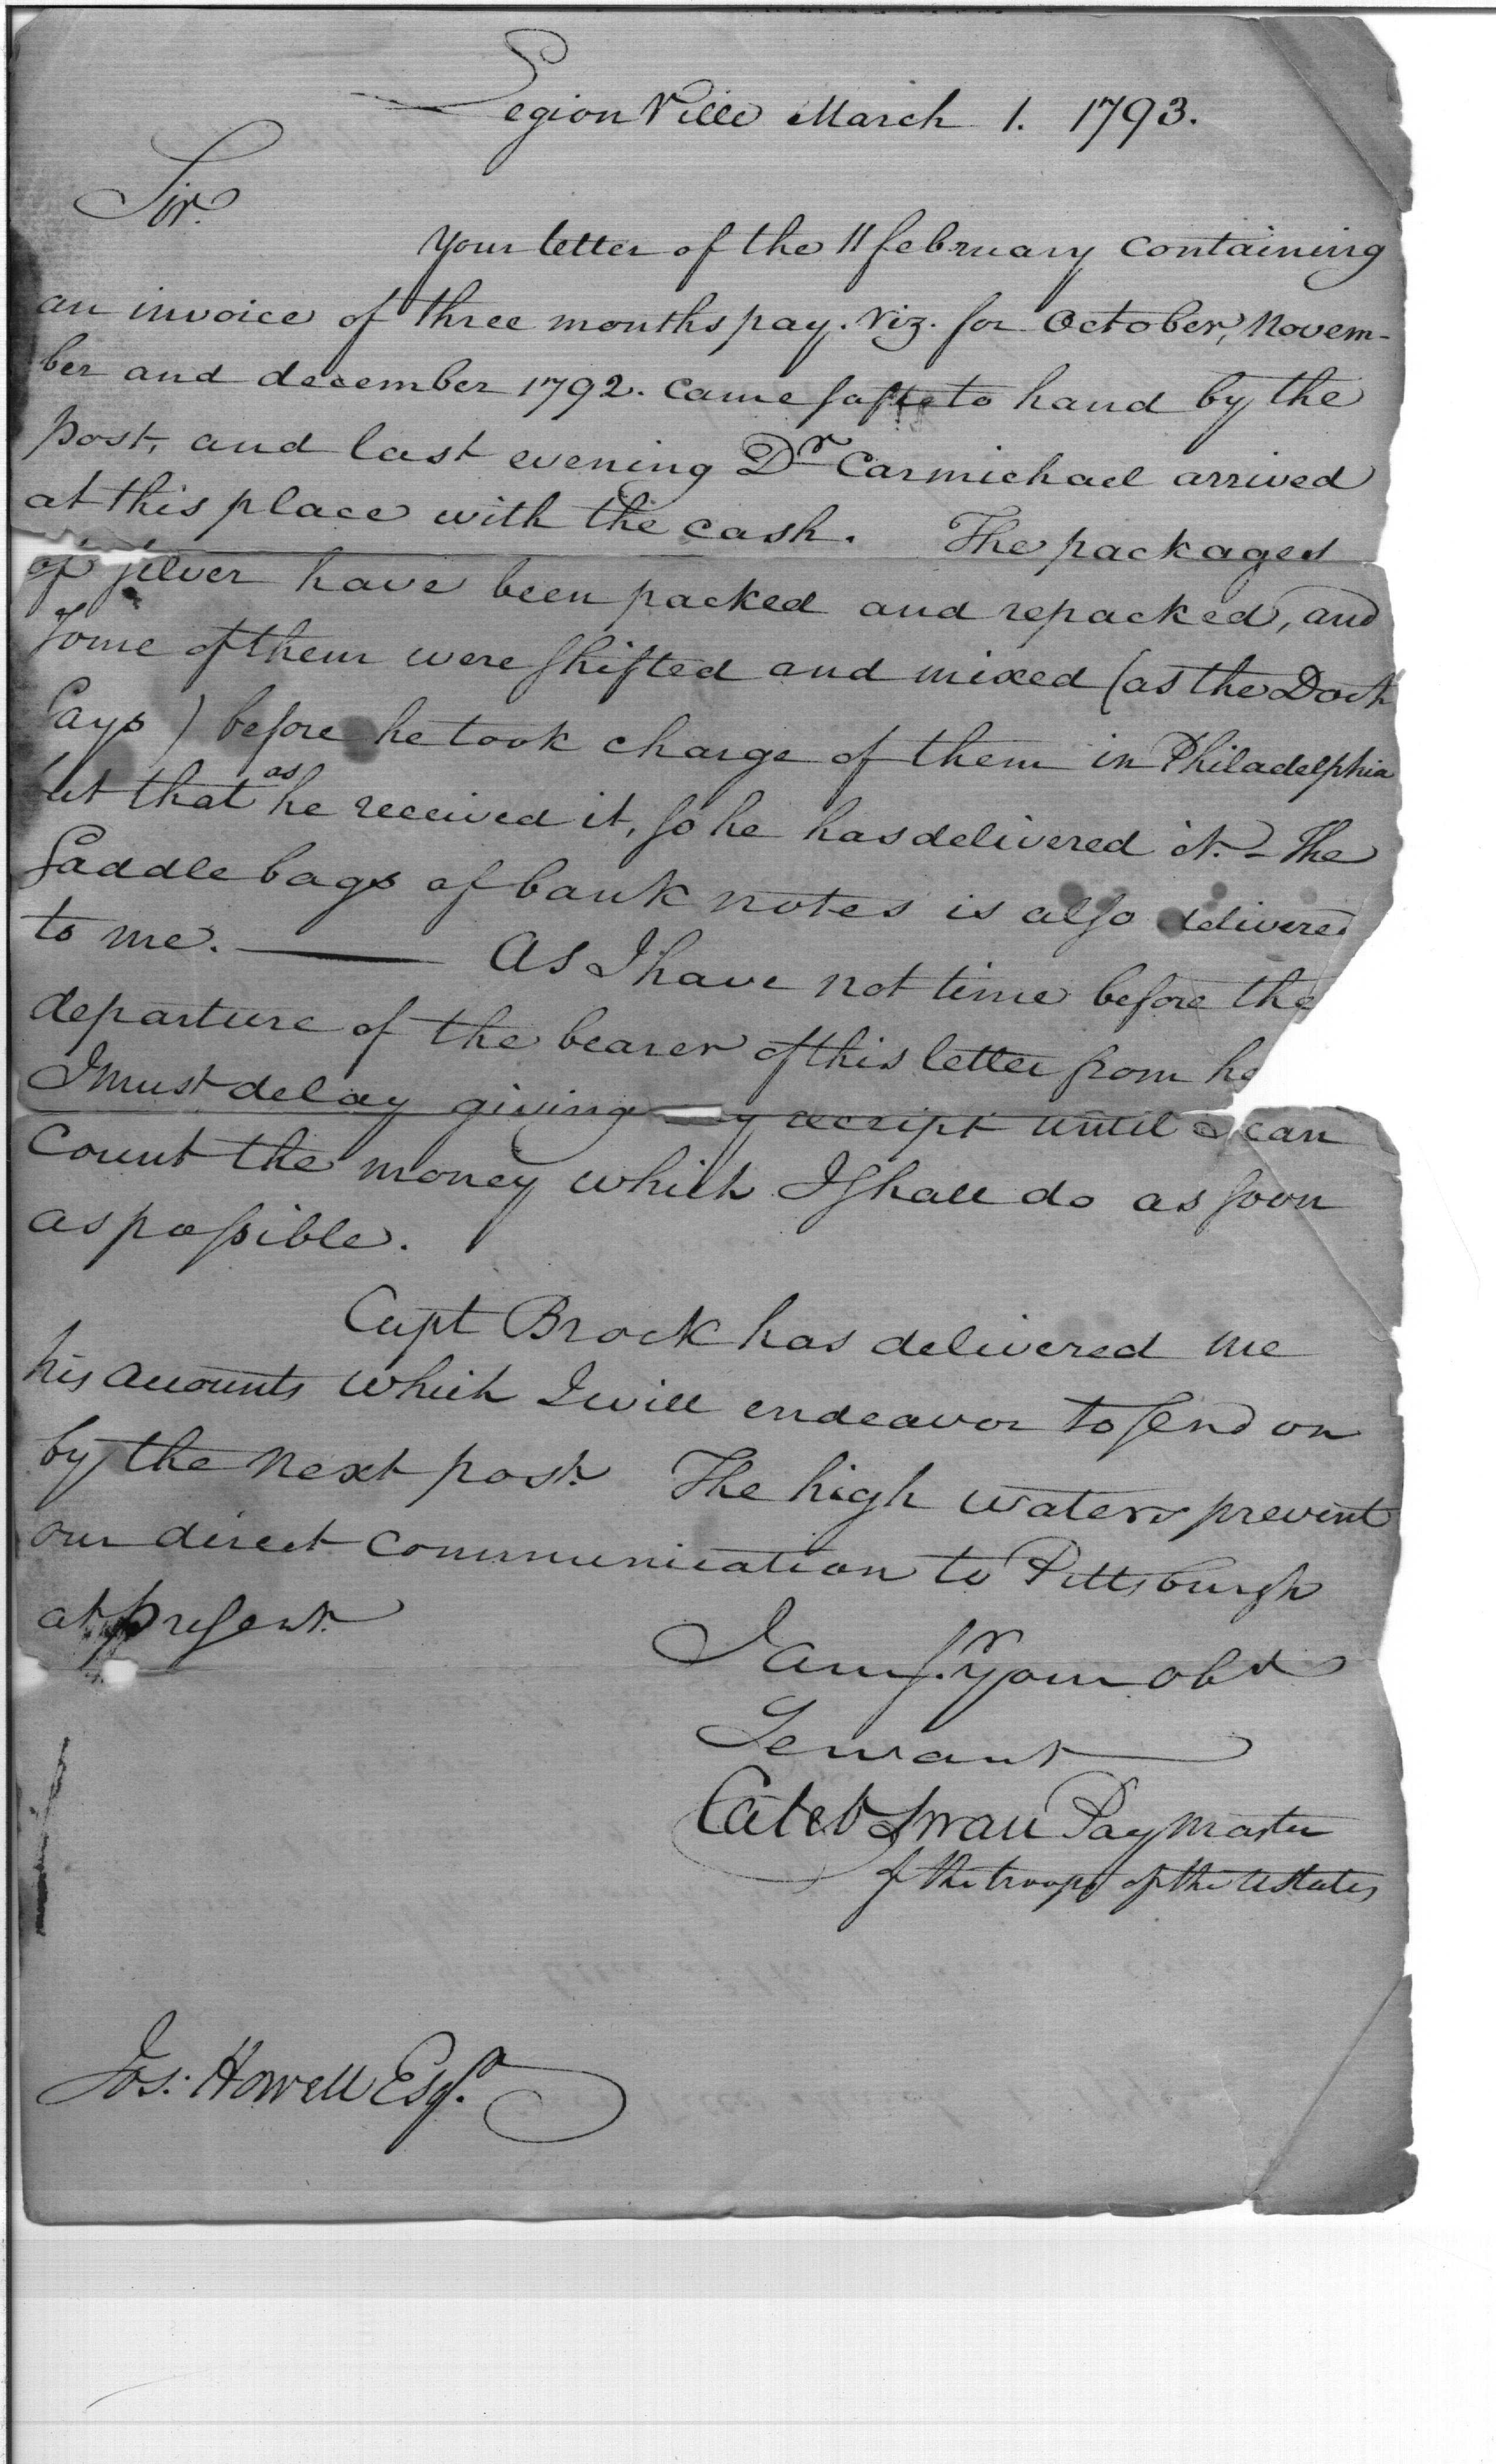 Legion Ville March 1. 1793.
Sir.
Your letter of the 11 february containing
an invoice of three months pay. Viz. for October, Novem-
ber and december 1792. came safe to hand by the
post, and last evening Dr Carmichael arrived
at this place with the cash. The packages
of silver have been packed and repacked, and
some of them were shifted and mixed (as the Doct
says) before he took charge of them in Philadelphia
but that as he received it, so he has delivered it. - The
saddle bags of bank notes is also delivered
to me. — As I have not time before the
departure of the bearer of this letter from he
I must delay giving my receipt until I can
count the money which I shall do as soon
as possible.
Capt Brock has delivered me
his accounts which I will endeavor to send on
by the next post. The high waters prevent
our direct communication to Pittsburgh
at present.
I am Sr. Your obt
Servant
Caleb Swan Pay Master
of the troops of the U States
Jos: Howell Esqr.